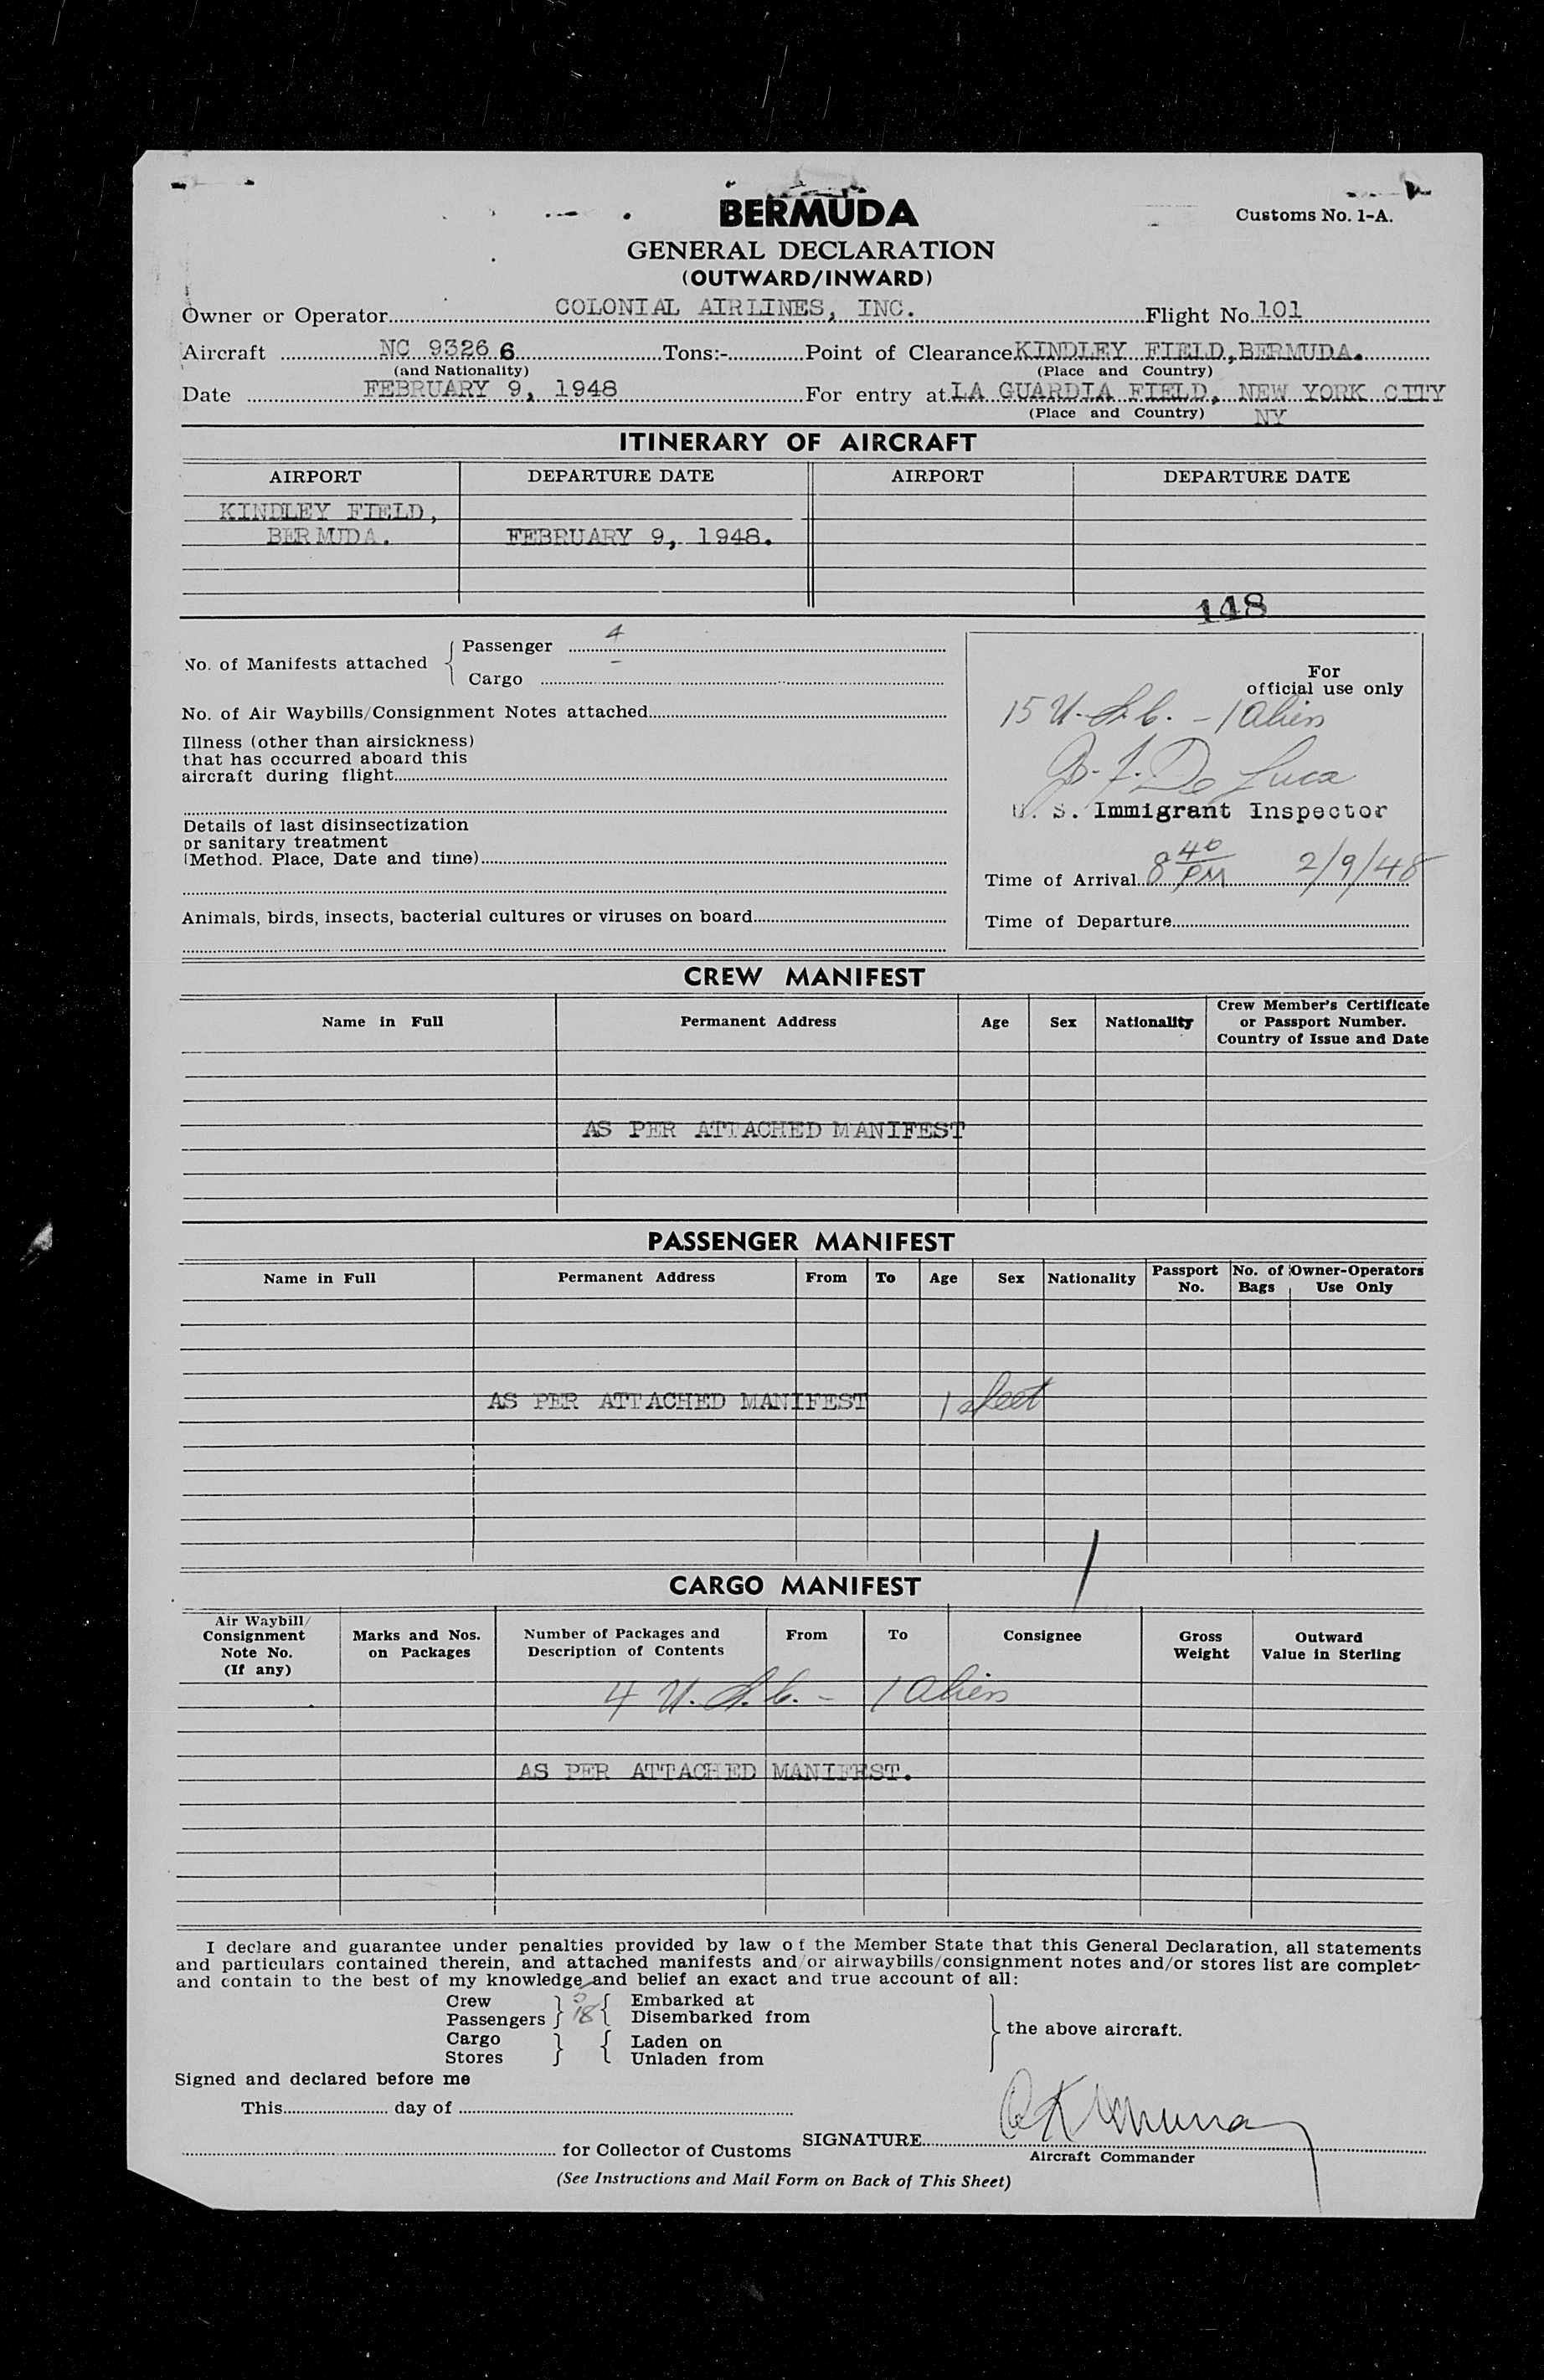 BERMUDA
Customs No. 1-A.
GENERAL DECLARATION
(OUTWARD/INWARD)
Owner or Operator COLONIAL AIRLINES, INC. Flight No. 101
Aircraft NC 93266 Tons:- Point of Clearance KINDLEY FIELD, BERMUDA.
(and Nationality) (Place and Country)
Date FEBRUARY 9, 1948 For entry at LA GUARDIA FIELD, NEW YORK CITY
(Place and Country) NY
ITINERARY OF AIRCRAFT
AIRPORT DEPARTURE DATE AIRPORT DEPARTURE DATE
KINDLEY FIELD,
BERMUDA. FEBRUARY 9, 1948.
148
No. of Manifests attached { Passenger 4
Cargo -
No. of Air Waybills/Consignment Notes attached
Illness (other than airsickness)
that has occurred aboard this
aircraft during flight
Details of last disinsectization
or sanitary treatment
(Method. Place, Date and time)
Animals, birds, insects, bacterial cultures or viruses on board
For
official use only
15 U.S.C. - 1 Alien
De Luca
U. S. Immigrant Inspector
Time of Arrival 8 40 PM 2/9/48
Time of Departure
CREW MANIFEST
Name in Full Permanent Address Age Sex Nationality Crew Member's Certificate
or Passport Number.
Country of Issue and Date
AS PER ATTACHED MANIFEST
PASSENGER MANIFEST
Name in Full Permanent Address From To Age Sex Nationality Passport No. No. of Bags Owner-Operators Use Only
AS PER ATTACHED MANIFEST 1 sheet
CARGO MANIFEST
Air Waybill/
Consignment
Note No.
(If any)
Marks and Nos.
on Packages
Number of Packages and
Description of Contents
From To Consignee
Gross
Weight
Outward
Value in Sterling
4 U.S.C. - 1 Alien
AS PER ATTACHED MANIFEST.
I declare and guarantee under penalties provided by law of the Member State that this General Declaration, all statements
and particulars contained therein, and attached manifests and/or airwaybills/consignment notes and/or stores list are complete
and contain to the best of my knowledge and belief an exact and true account of all:
Crew Embarked at
Passengers } 18 { Disembarked from
the above aircraft.
Cargo Laden on
Stores } { Unladen from
Signed and declared before me
This day of
for Collector of Customs SIGNATURE
Aircraft Commander
(See Instructions and Mail Form on Back of This Sheet)